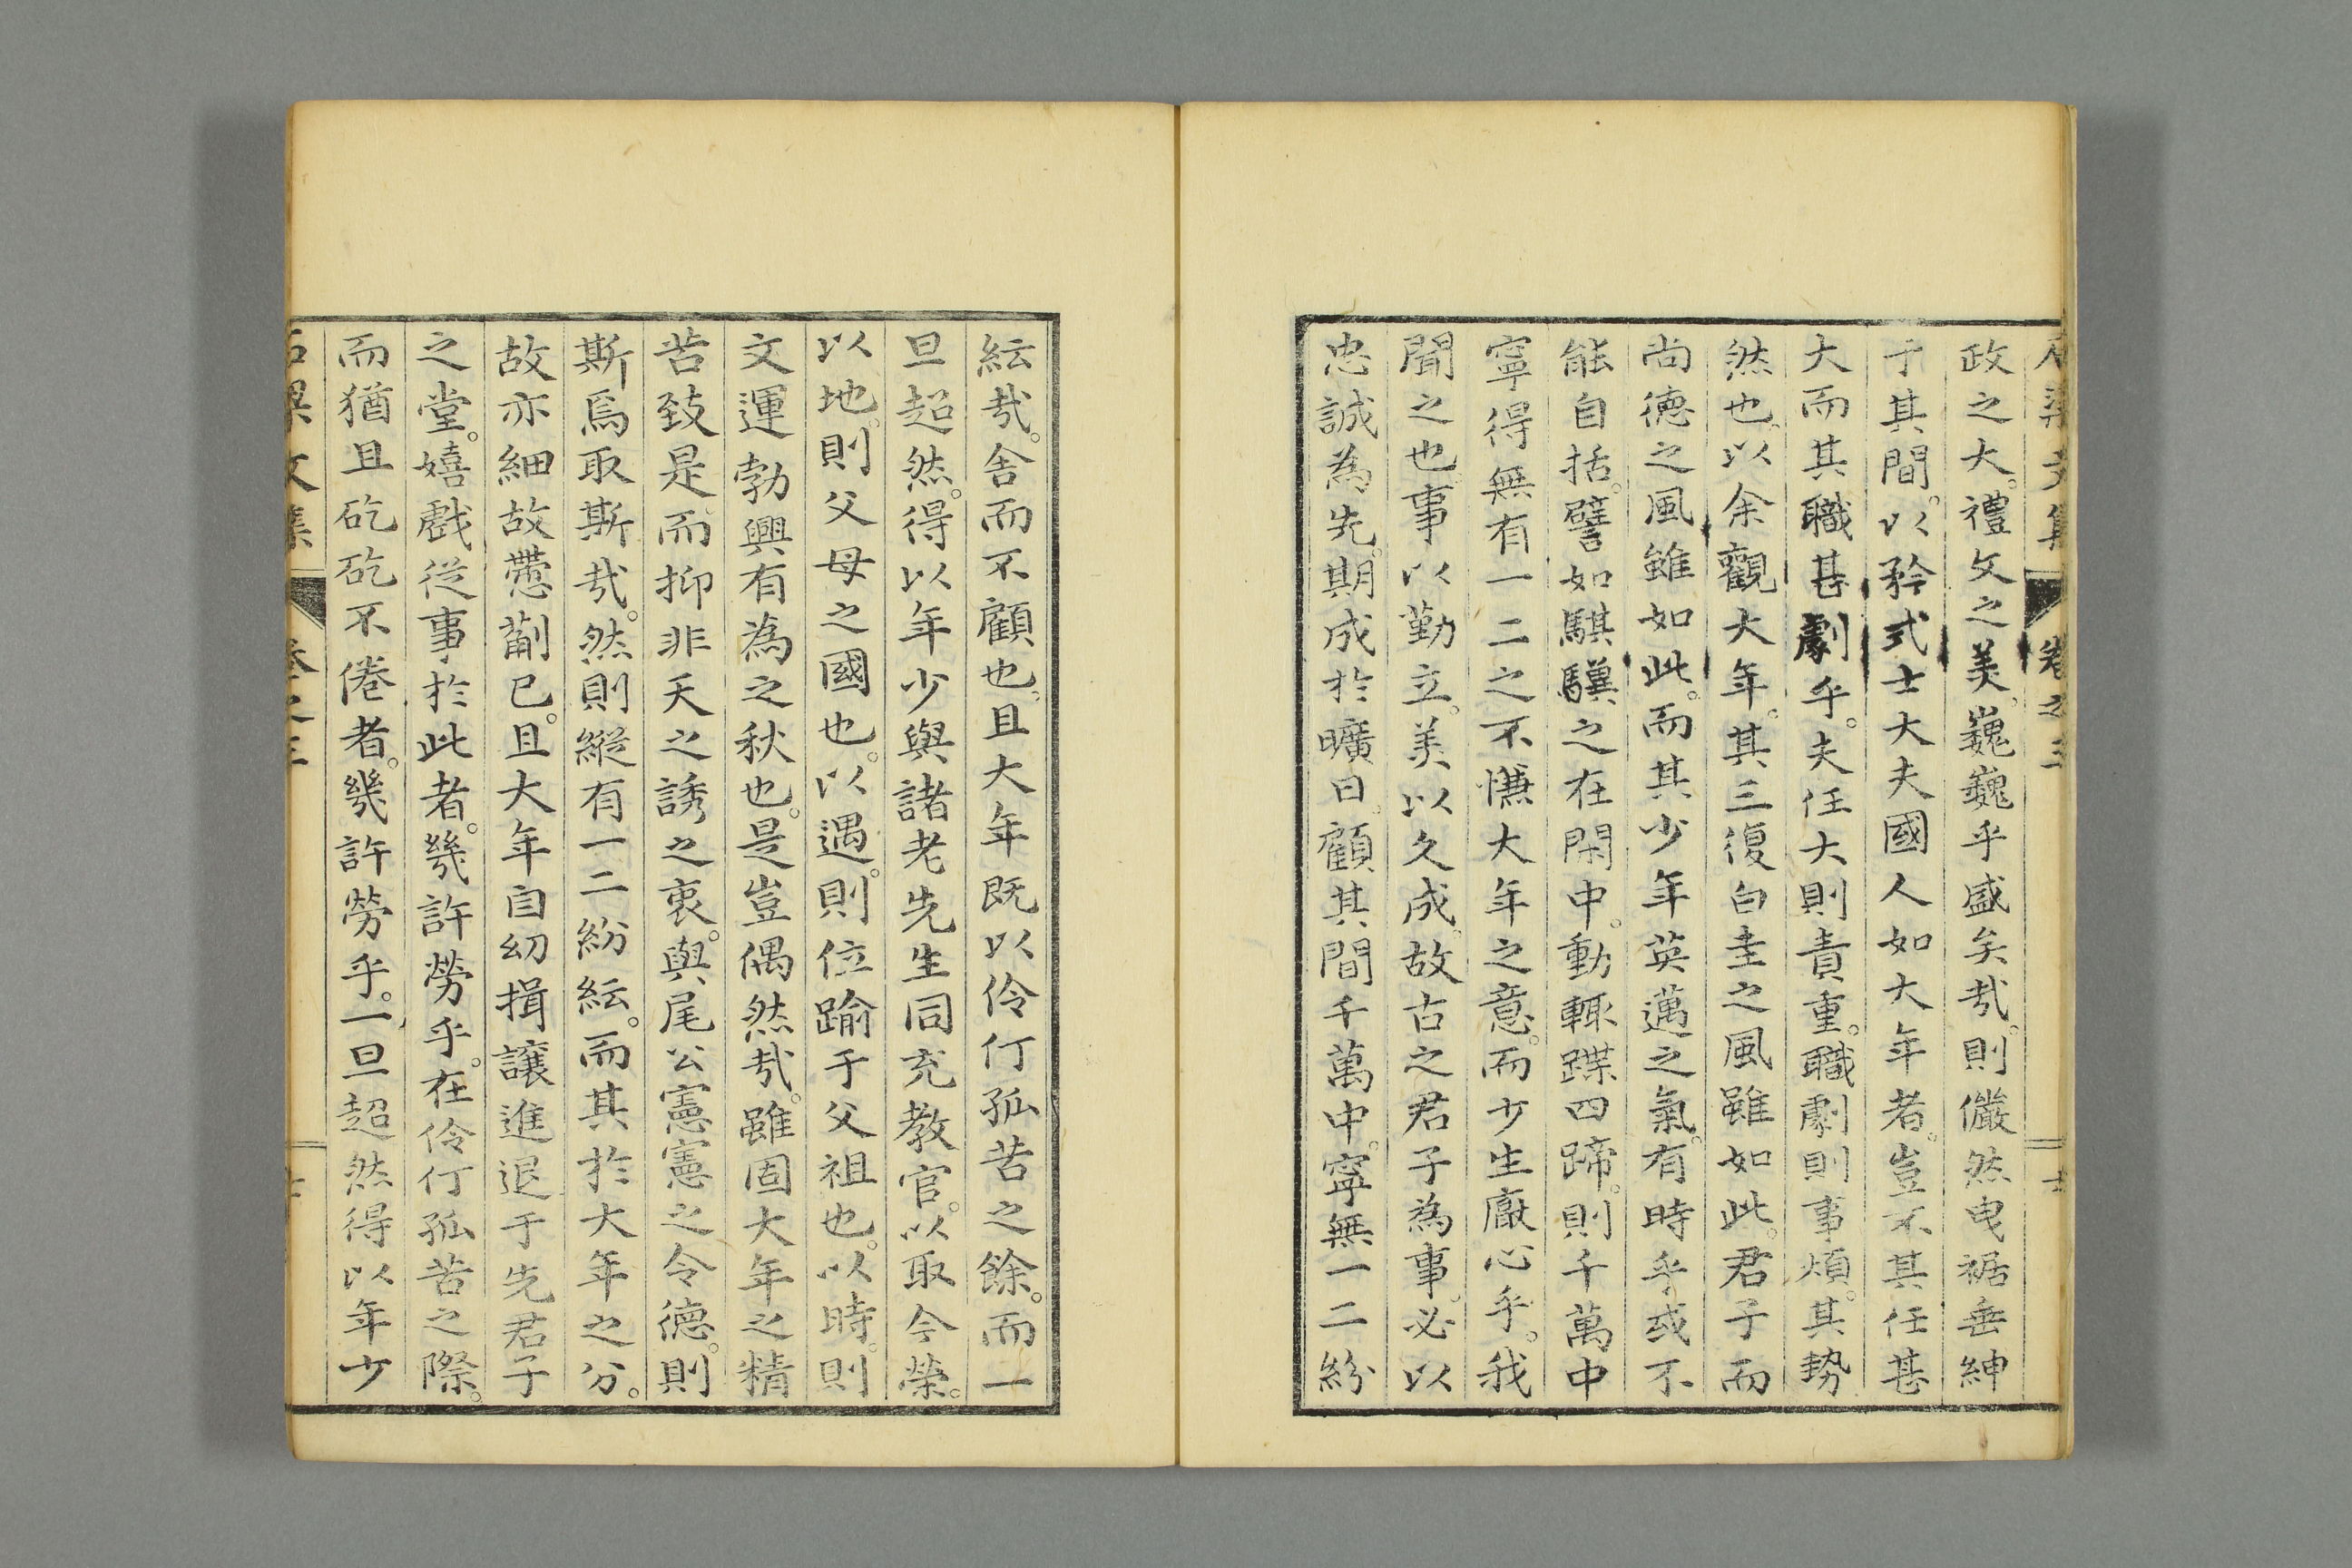 政之大。禮文之美。巍巍乎盛矣哉。則儼然曳裾垂紳
于其間。以矜式士大夫國人如大年者。豈不其任甚
大而其職甚劇乎。夫任大則責重。職劇則事煩。其勢
然也。以余觀大年。其三復白圭之風雖如此。君子而
尚德之風雖如此。而其少年英邁之氣。有時乎或不
能自括。譬如騏驥之在閑中。動輒蹀四蹄。則千萬中
寧得無有一二之不慊大年之意。而少生厭心乎。我
聞之也。事以勤立。美以久成。故古之君子為事。必以
忠誠為先。期成於曠日。顧其間千萬中。寧無一二紛
紜哉。舍而不顧也。且大年既以伶仃孤苦之餘。而一
旦超然。得以年少與諸老先生同充教官。以取今榮。
以地。則父母之國也。以遇。則位踰于父祖也。以時。則
文運勃興有為之秋也。是豈偶然哉。雖固大年之精
苦致是。而抑非天之誘之衷。與尾公憲憲之令德。則
斯焉取斯哉。然則縱有一二紛紜。而其於大年之分。
故亦細故蔕葪已。且大年自幼揖讓進退于先君子
之堂。嬉戲從事於此者。幾許勞乎。在伶仃孤苦之際。
而猶且矻矻不倦者。幾許勞乎。一旦超然得以年少
文集 卷之三